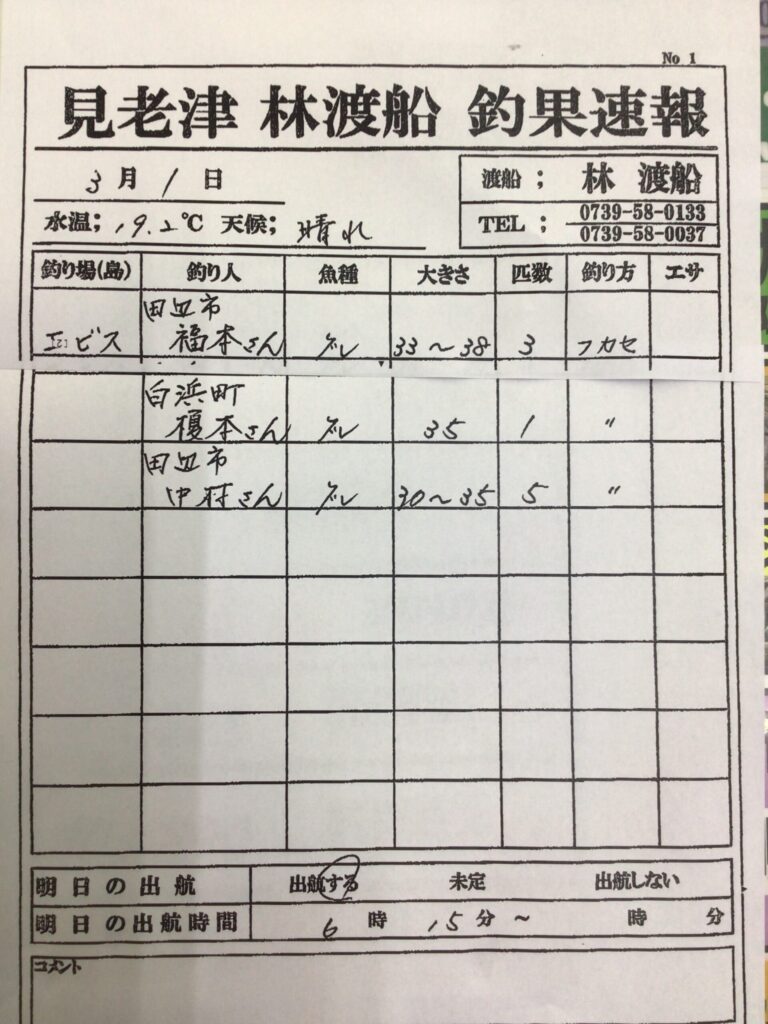 No 1
見老津 林渡船 釣果速報
3月1日
渡船; 林 渡船
水温; 19.2℃ 天候; 晴れ
TEL; 0739-58-0133
0739-58-0037
釣り場(島) 釣り人 魚種 大きさ 匹数 釣り方 エサ
田辺市
エビス 福本さん グレ 33〜38 3 フカセ
白浜町
榎本さん グレ 35 1 〃
田辺市
中村さん グレ 30〜35 5 〃
明日の出航 出航する 未定 出航しない
明日の出航時間 6時15分〜 時 分
コメント